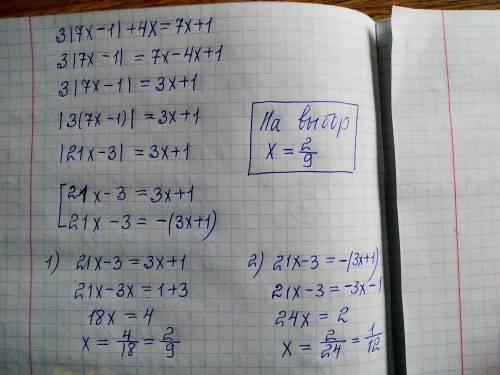 3|7x-1|+4x=7x+1
3|7x-1|=7x-4x+1
3|7x-1|=3x+1
|3(7x-1)|=3x+1
|21x-3|=3x+1
На выбор
x=2/9
[21x-3=3x+1
21x-3=-(3x+1)
1) 21x-3=3x+1
21x-3x=1+3
18x=4
x=4/18=2/9
2) 21x-3=-(3x+1)
21x-3=-3x-1
24x=2
x=2/24=1/12